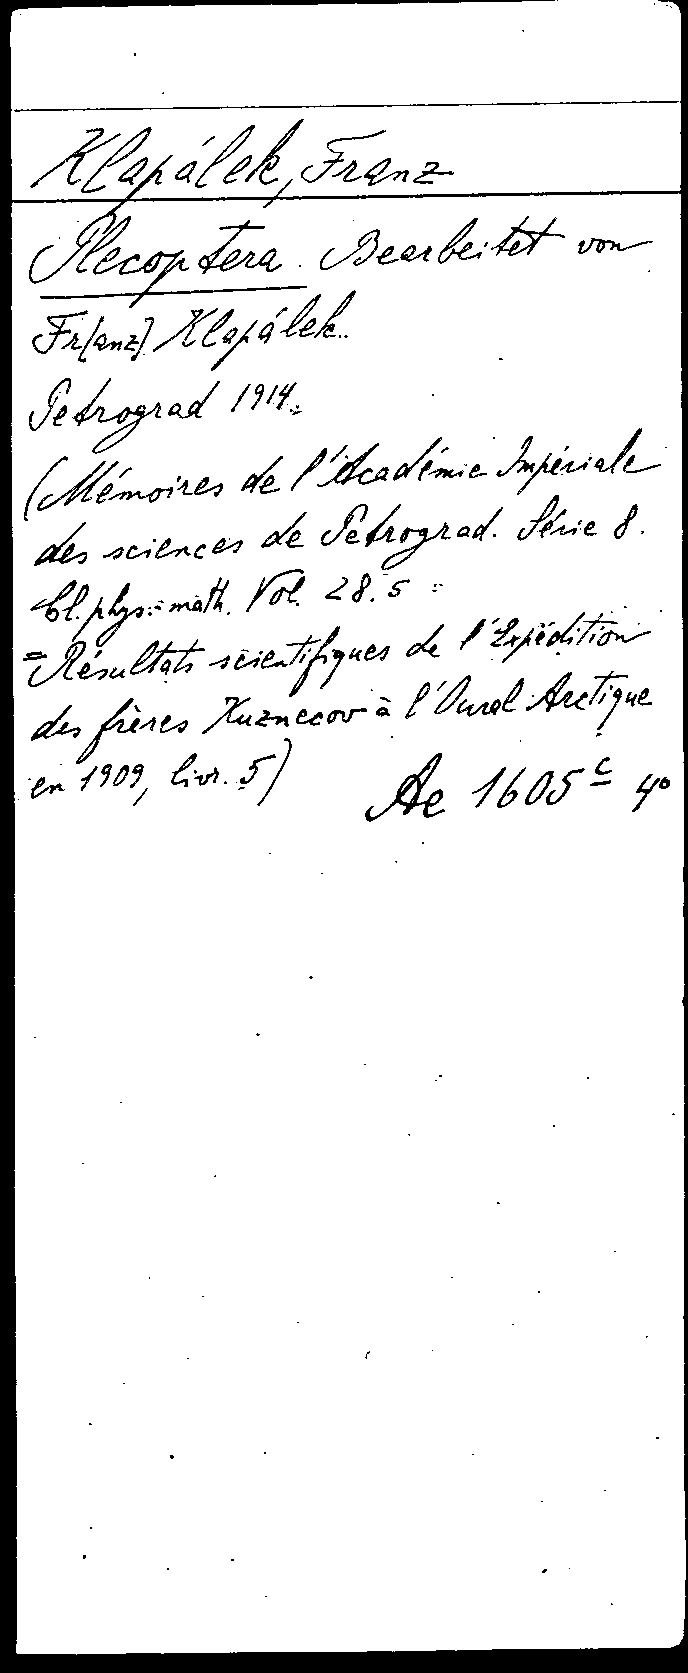 Klapálek, Franz
Plecoptera. Bearbeitet von
Fr[anz] Klapálek.
Petrograd 1914.
(Mémoires de l'Académie Impériale
des sciences de Petrograd. Série 8.
Cl. phys.-math. Vol. 28.5 =
=Résultats scientifiques de l'Expédition
des frères Kuznecov à l'Oural Arctique
en 1909, livr. 5)
Ae 1605c 4°